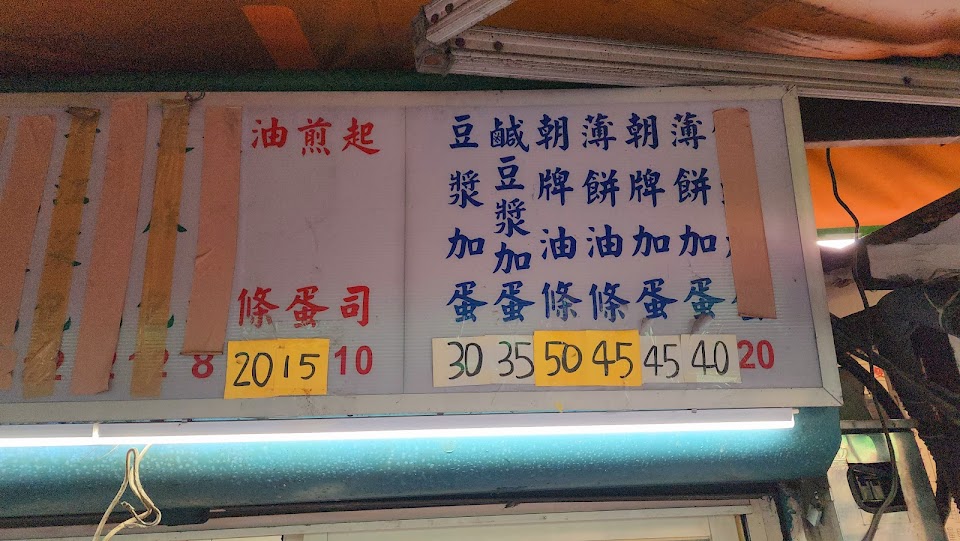 20
薄餅加蛋
40
朝牌加蛋
45
薄餅油條
45
朝牌油條
50
鹹豆漿加蛋
35
豆漿加蛋
30
起司
10
煎蛋
15
油條
20
8